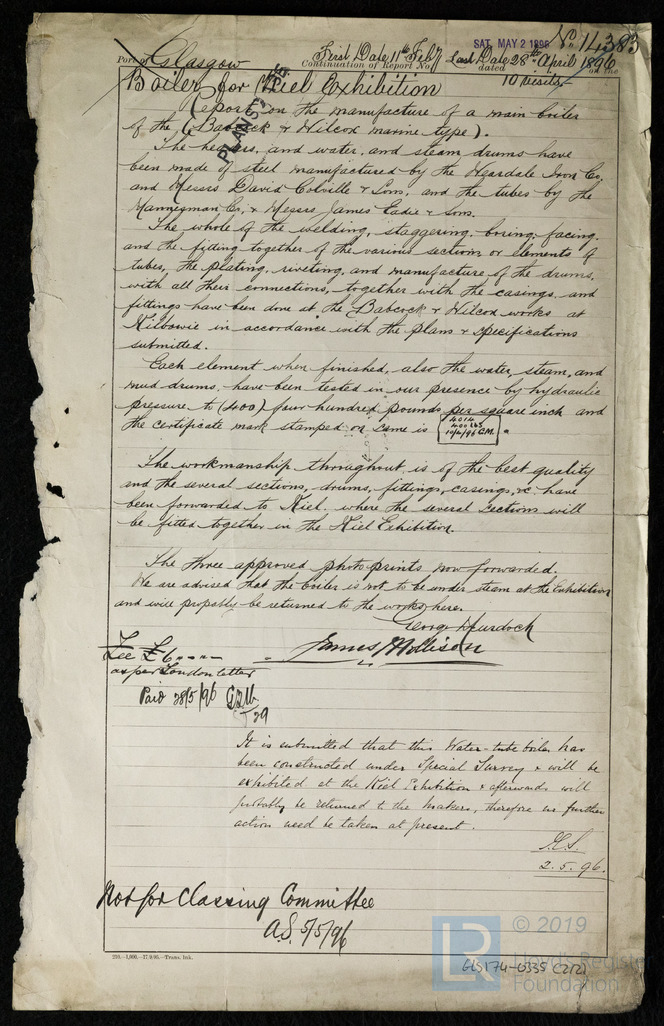 SAT. MAY 2 1896
No. 14,383
Port of Glasgow First Date 11th Feby Last Date 28th April 1896
Continuation of Report No. dated on the
10 visits.
Boiler for Kiel Exhibition
PLANS
Report on the manufacture of a main boiler
of the (Babcock & Wilcox marine type).
The headers, and water, and steam drums have
been made of steel manufactured by the Weardale Iron Co.
and Messrs David Colville & Sons, and the tubes by the
Mannesman Co. & Messrs James Eadie & Sons.
The whole of the welding, staggering, boring, facing,
and the fitting together of the various sections or elements of
tubes, the plating, riveting, and manufacture of the drums,
with all their connections, together with the casings, and
fittings have been done at the Babcock & Wilcox works at
Kilbowie in accordance with the plans & specifications
submitted.
Each element when finished, also the water, steam, and
mud drums, have been tested in our presence by hydraulic
pressure to (400) four hundred pounds per square inch and
the certificate mark stamped on same is
4014
400 lbs
10/4/96 G.M.
The workmanship throughout is of the best quality
and the several sections, drums, fittings, casings, &c have
been forwarded to Kiel, where the several sections will
be fitted together in the Kiel Exhibition.
The three approved photo prints now forwarded.
We are advised that the boiler is not to be under steam at the Exhibition
and will probably be returned to the works here.
George Murdoch
James Mollison
Fee £6 " - " -
as per London letter
Paid 28/5/96
29
It is submitted that this Water-tube boiler has
been constructed under Special Survey & will be
exhibited at the Kiel Exhibition & afterwards will
probably be returned to the makers, therefore no further
action need be taken at present.
2.5.96.
Not for Classing Committee
A.S. 5/5/96
250.—1,000.—17.9.95.—Trans. Ink.
LR
© 2019
Lloyd's Register
Foundation
GLS174-0335 (2/2)